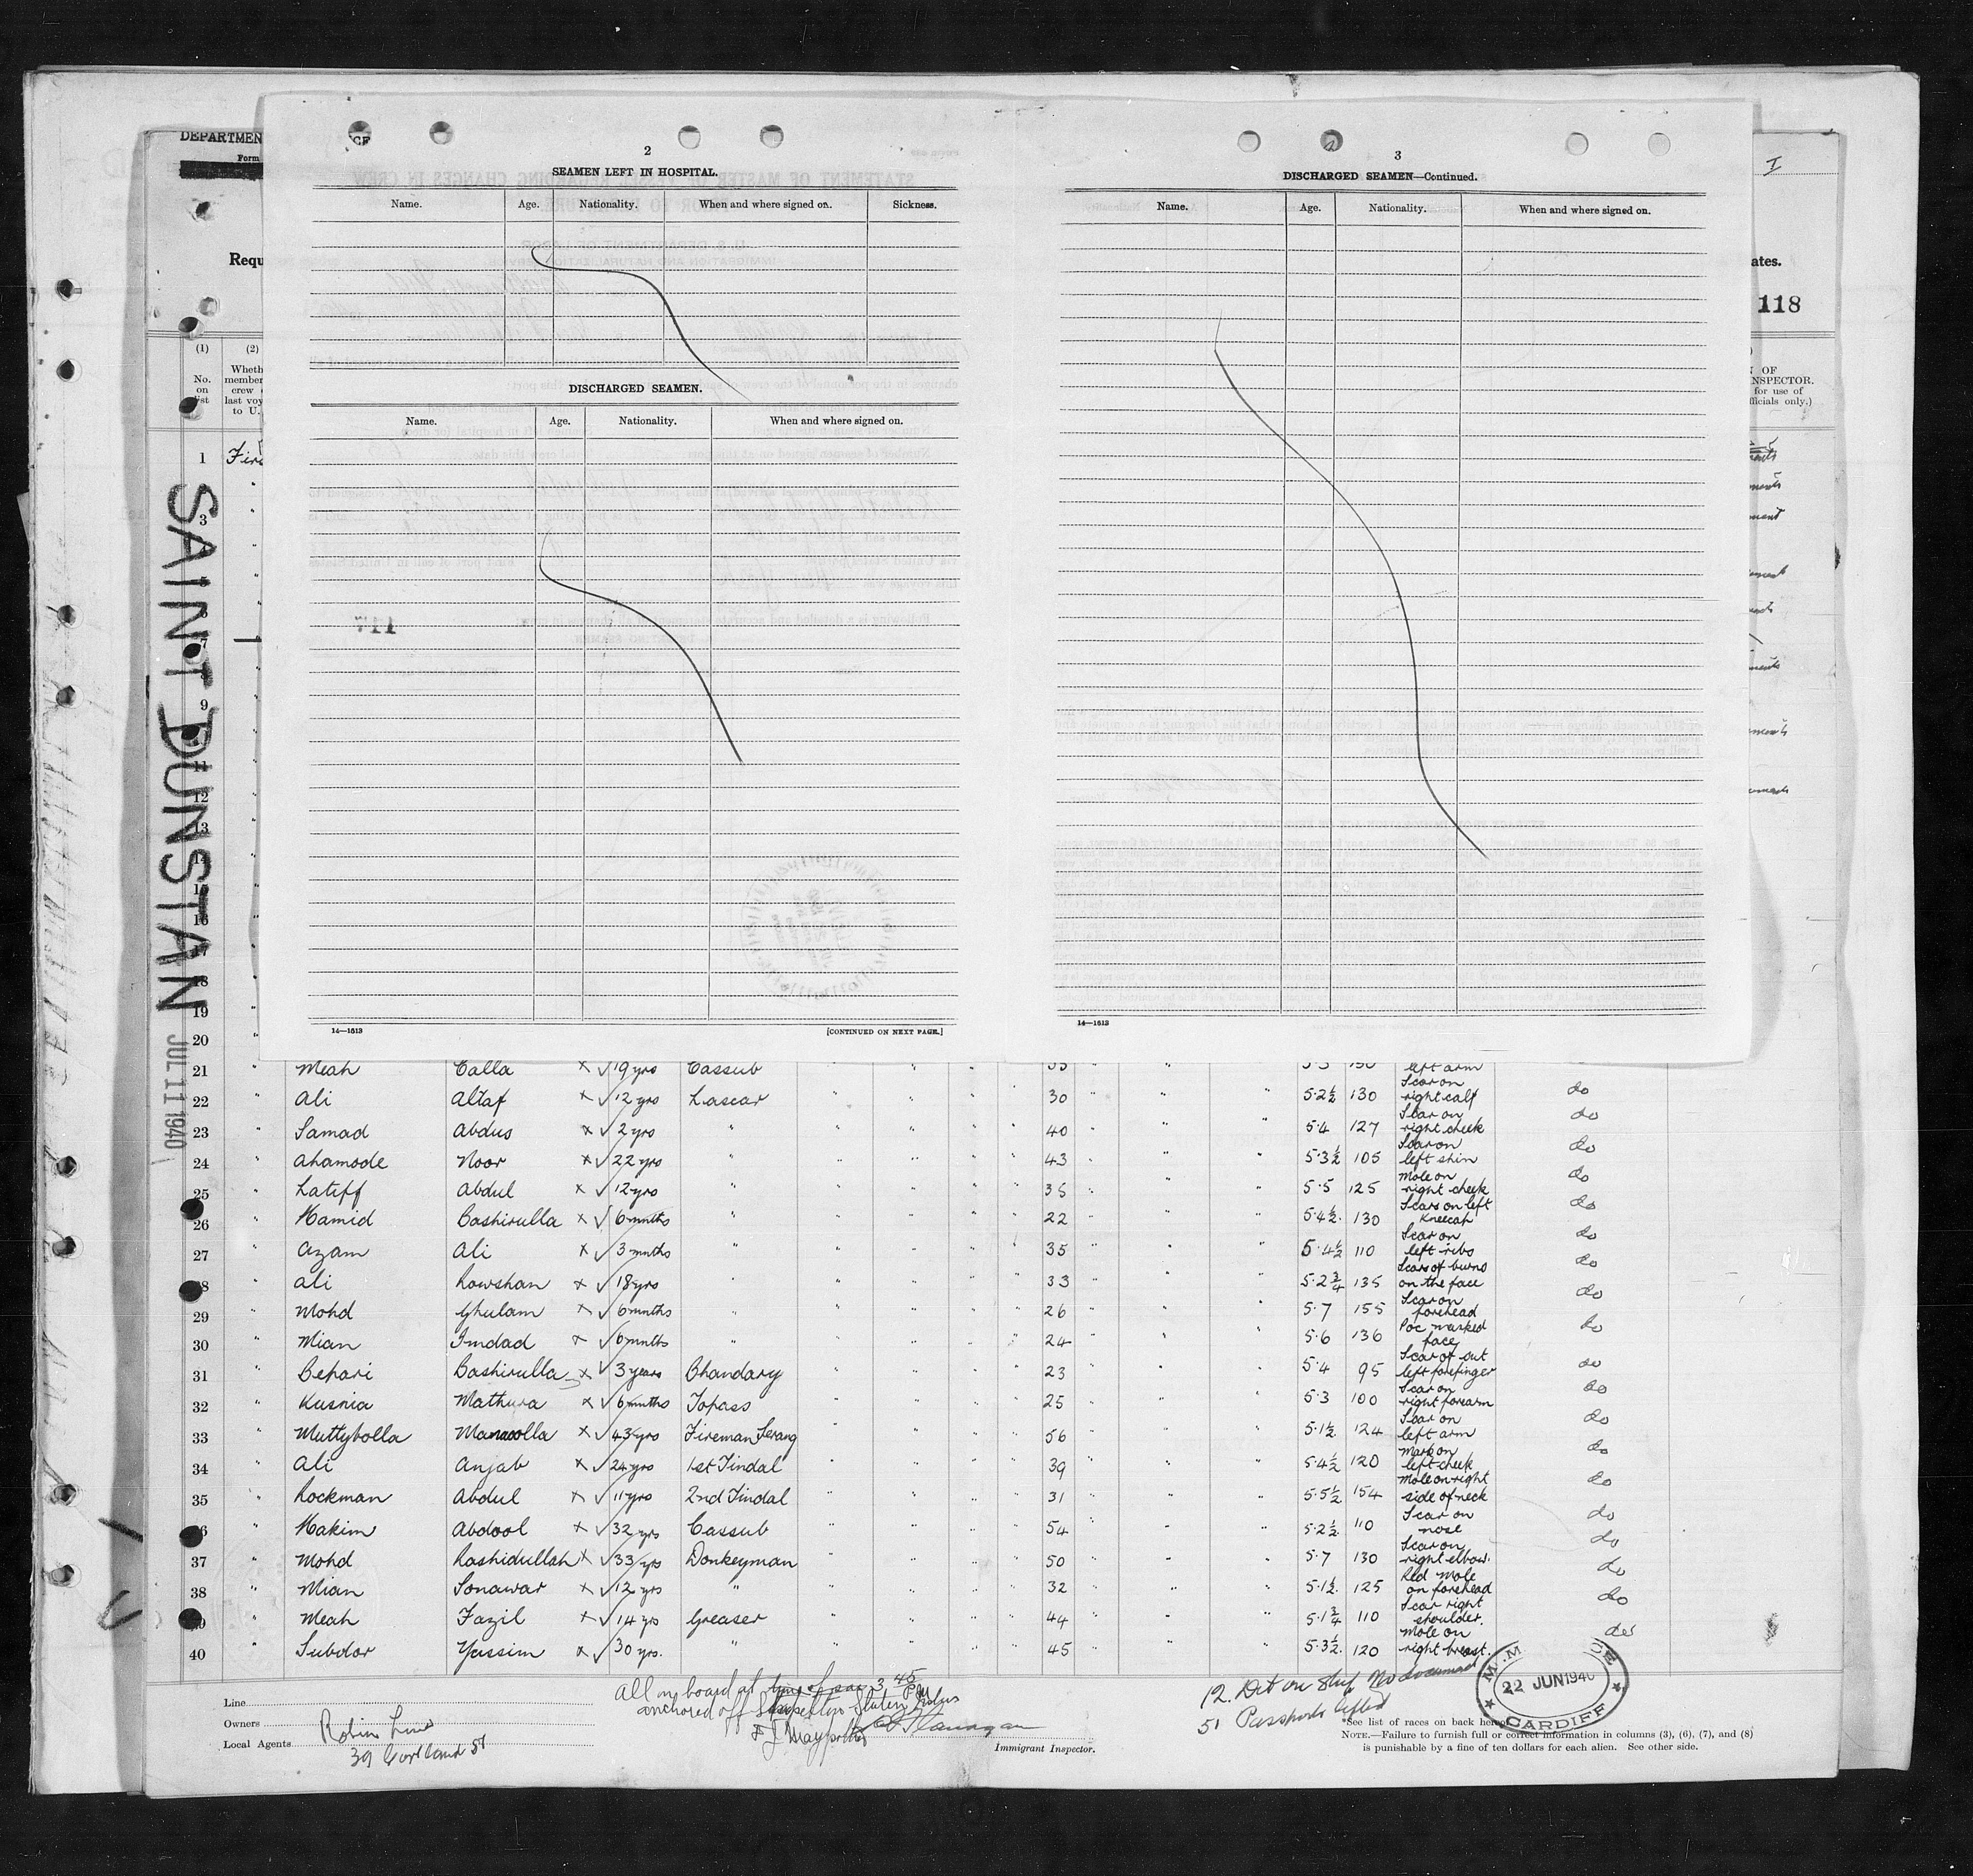 DEPARTMEN
CE
Form
I
Requ
ates.
118
SAINT DUNSTAN
JUL 11 1940
2
SEAMEN LEFT IN HOSPITAL.
Name. Age. Nationality. When and where signed on. Sickness.
DISCHARGED SEAMEN.
Name. Age. Nationality. When and where signed on.
117
14—1513
[CONTINUED ON NEXT PAGE.]
3
DISCHARGED SEAMEN—Continued.
Name. Age. Nationality. When and where signed on.
14—1513
(1) (2)
No. on list
Wheth
member
crew
last voy
to U.
OF
NSPECTOR.
for use of
fficials only.)
1
3
5
6
7
9
11
12
13
14
15
16
17
18
19
20
21 " Meah Calla x √ 19 yrs Cassub " " " 35 " " left arm
22 " Ali Altaf x √ 12 yrs Lascar " " " " 30 " " " 5·2½ 130 Scar on right calf do
23 " Samad Abdus x √ 2 yrs " " " " " 40 " " " 5·4 127 Scar on right cheek do
24 " Ahamode Noor x √ 22 yrs " " " " " 43 " " " 5·3½ 105 Scar on left shin do
25 " Latiff Abdul x √ 12 yrs " " " " " 35 " " " 5·5 125 Mole on right cheek do
26 " Hamid Bashirulla x √ 6 mnths " " " " " 22 " " " 5·4½ 130 Scars on left Kneecap do
27 " Azam Ali x √ 3 mnths " " " " " 35 " " " 5·4½ 110 Scar on left ribs do
28 " Ali Rowshan x √ 18 yrs " " " " " 33 " " " 5·2¾ 135 Scars of burns on the face do
29 " Mohd Ghulam x √ 6 mnths " " " " " 26 " " " 5·7 155 Scar on forehead do
30 " Mian Imdad x √ 6 mnths " " " " " 24 " " " 5·6 136 Poc marked face do
31 " Behari Bashirulla x √ 3 years Bhandary " " " " 23 " " " 5·4 95 Scar of cut left forefinger do
32 " Kusnia Mathura x √ 6 mnths Topass " " " " 25 " " " 5·3 100 Scar on right forearm do
33 " Muttybolla x √ 43 yrs Fireman Serang " " " " 56 " " " 5·1½ 124 Scar on left arm do
34 " Ali Anjab x √ 24 yrs 1st Tindal " " " " 39 " " " 5·4½ 120 Mark on left cheek do
35 " Rockman Abdul x √ 11 yrs 2nd Tindal " " " " 31 " " " 5·5½ 154 Mole on right side of neck do
36 " Hakim Abdool x √ 32 yrs Cassub " " " " 54 " " " 5·2½ 110 Scar on nose do
37 " Mohd Rashidullah x √ 33 yrs Donkeyman " " " " 50 " " " 5·7 130 Scar on right elbow. do
38 " Mian Sonawar x √ 12 yrs " " " " " 32 " " " 5·1½ 125 Red Mole on forehead do
39 " Meah Fazil x √ 14 yrs Greaser " " " " 44 " " " 5·1¾ 110 Scar right shoulder. do
40 " Subdor Yassim x √ 30 yrs. " " " " " 45 " " " 5·3½ 120 Mole on right breast. do
Line
Owners
Robin Line
Local Agents
39 Cortland St
All on board at 3 45 PM
anchored off Stapelton Staten
Flanagan
Immigrant Inspector.
12. Det on Ship No documents
51 Passports lifted
22 JUN 1940
CARDIFF
*See list of races on back hereof.
NOTE.—Failure to furnish full or correct information in columns (3), (6), (7), and (8)
is punishable by a fine of ten dollars for each alien. See other side.